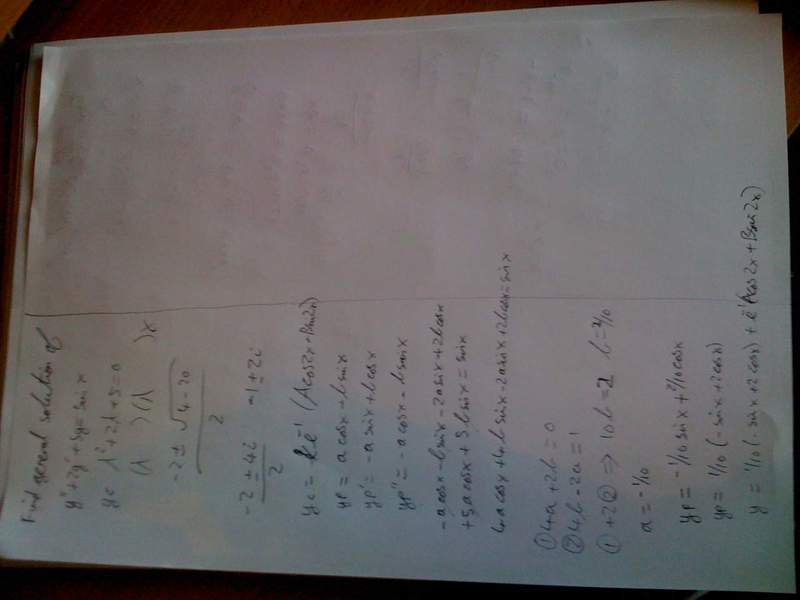 Find general solution of
y'' + 2y' + 5y = sin x
yc λ² + 2λ + 5 = 0
(λ )(λ )x
-2 ± √4 - 20
2
-2 ± 4i -1 ± 2i
2
yc = e⁻¹ (A cos 2x + B sin 2x)
yp = a cos x + b sin x
yp' = -a sin x + b cos x
yp'' = -a cos x - b sin x
-a cos x - b sin x - 2a sin x + 2b cos x
+ 5a cos x + 5b sin x = sin x
4a cos x + 4b sin x - 2a sin x + 2b cos x = sin x
① 4a + 2b = 0
② 4b - 2a = 1
① + 2② ⇒ 10b = 2 b = 2/10
a = -1/10
yp = -1/10 sin x + 2/10 cos x
yp = 1/10 (-sin x + 2 cos x)
y = 1/10 (-sin x + 2 cos x) + e⁻¹ (A cos 2x + B sin 2x)